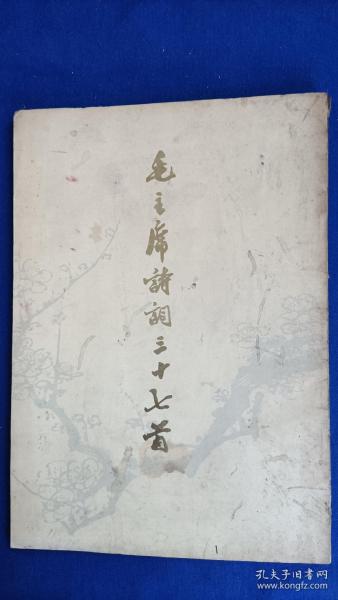 毛主席詩詞三十七首
孔夫子旧书网
www.kongfz.com